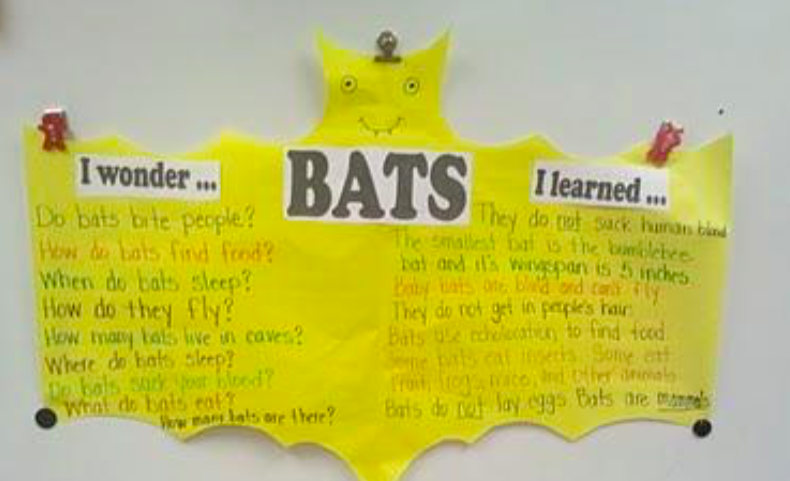 BATS
I wonder ...
Do bats bite people?
How do bats find food?
When do bats sleep?
How do they fly?
How many bats live in caves?
Where do bats sleep?
Do bats suck your blood?
What do bats eat?
How many bats are there?
I learned ...
They do not suck human blood
The smallest bat is the bumblebee
bat and it's wingspan is 5 inches
Baby bats are blind and can't fly
They do not get in people's hair.
Bats use echolocation to find food.
Some bats eat insects. Some eat
fruit, frogs, mice, and other animals.
Bats do not lay eggs Bats are mammals